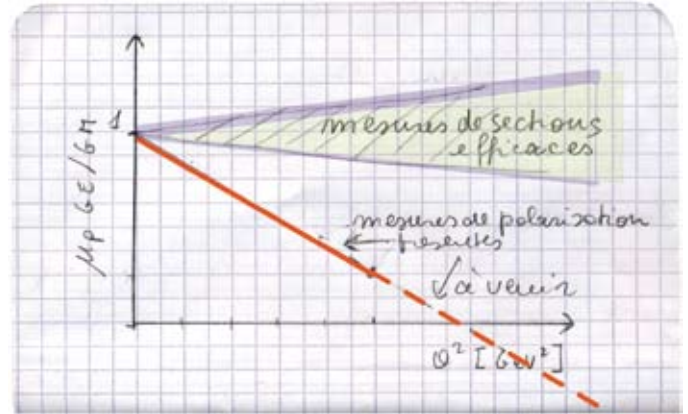 1
mesures de sections
efficaces
μp GE/GM
mesures de polarisation
présentes
à venir
Q² [GeV²]